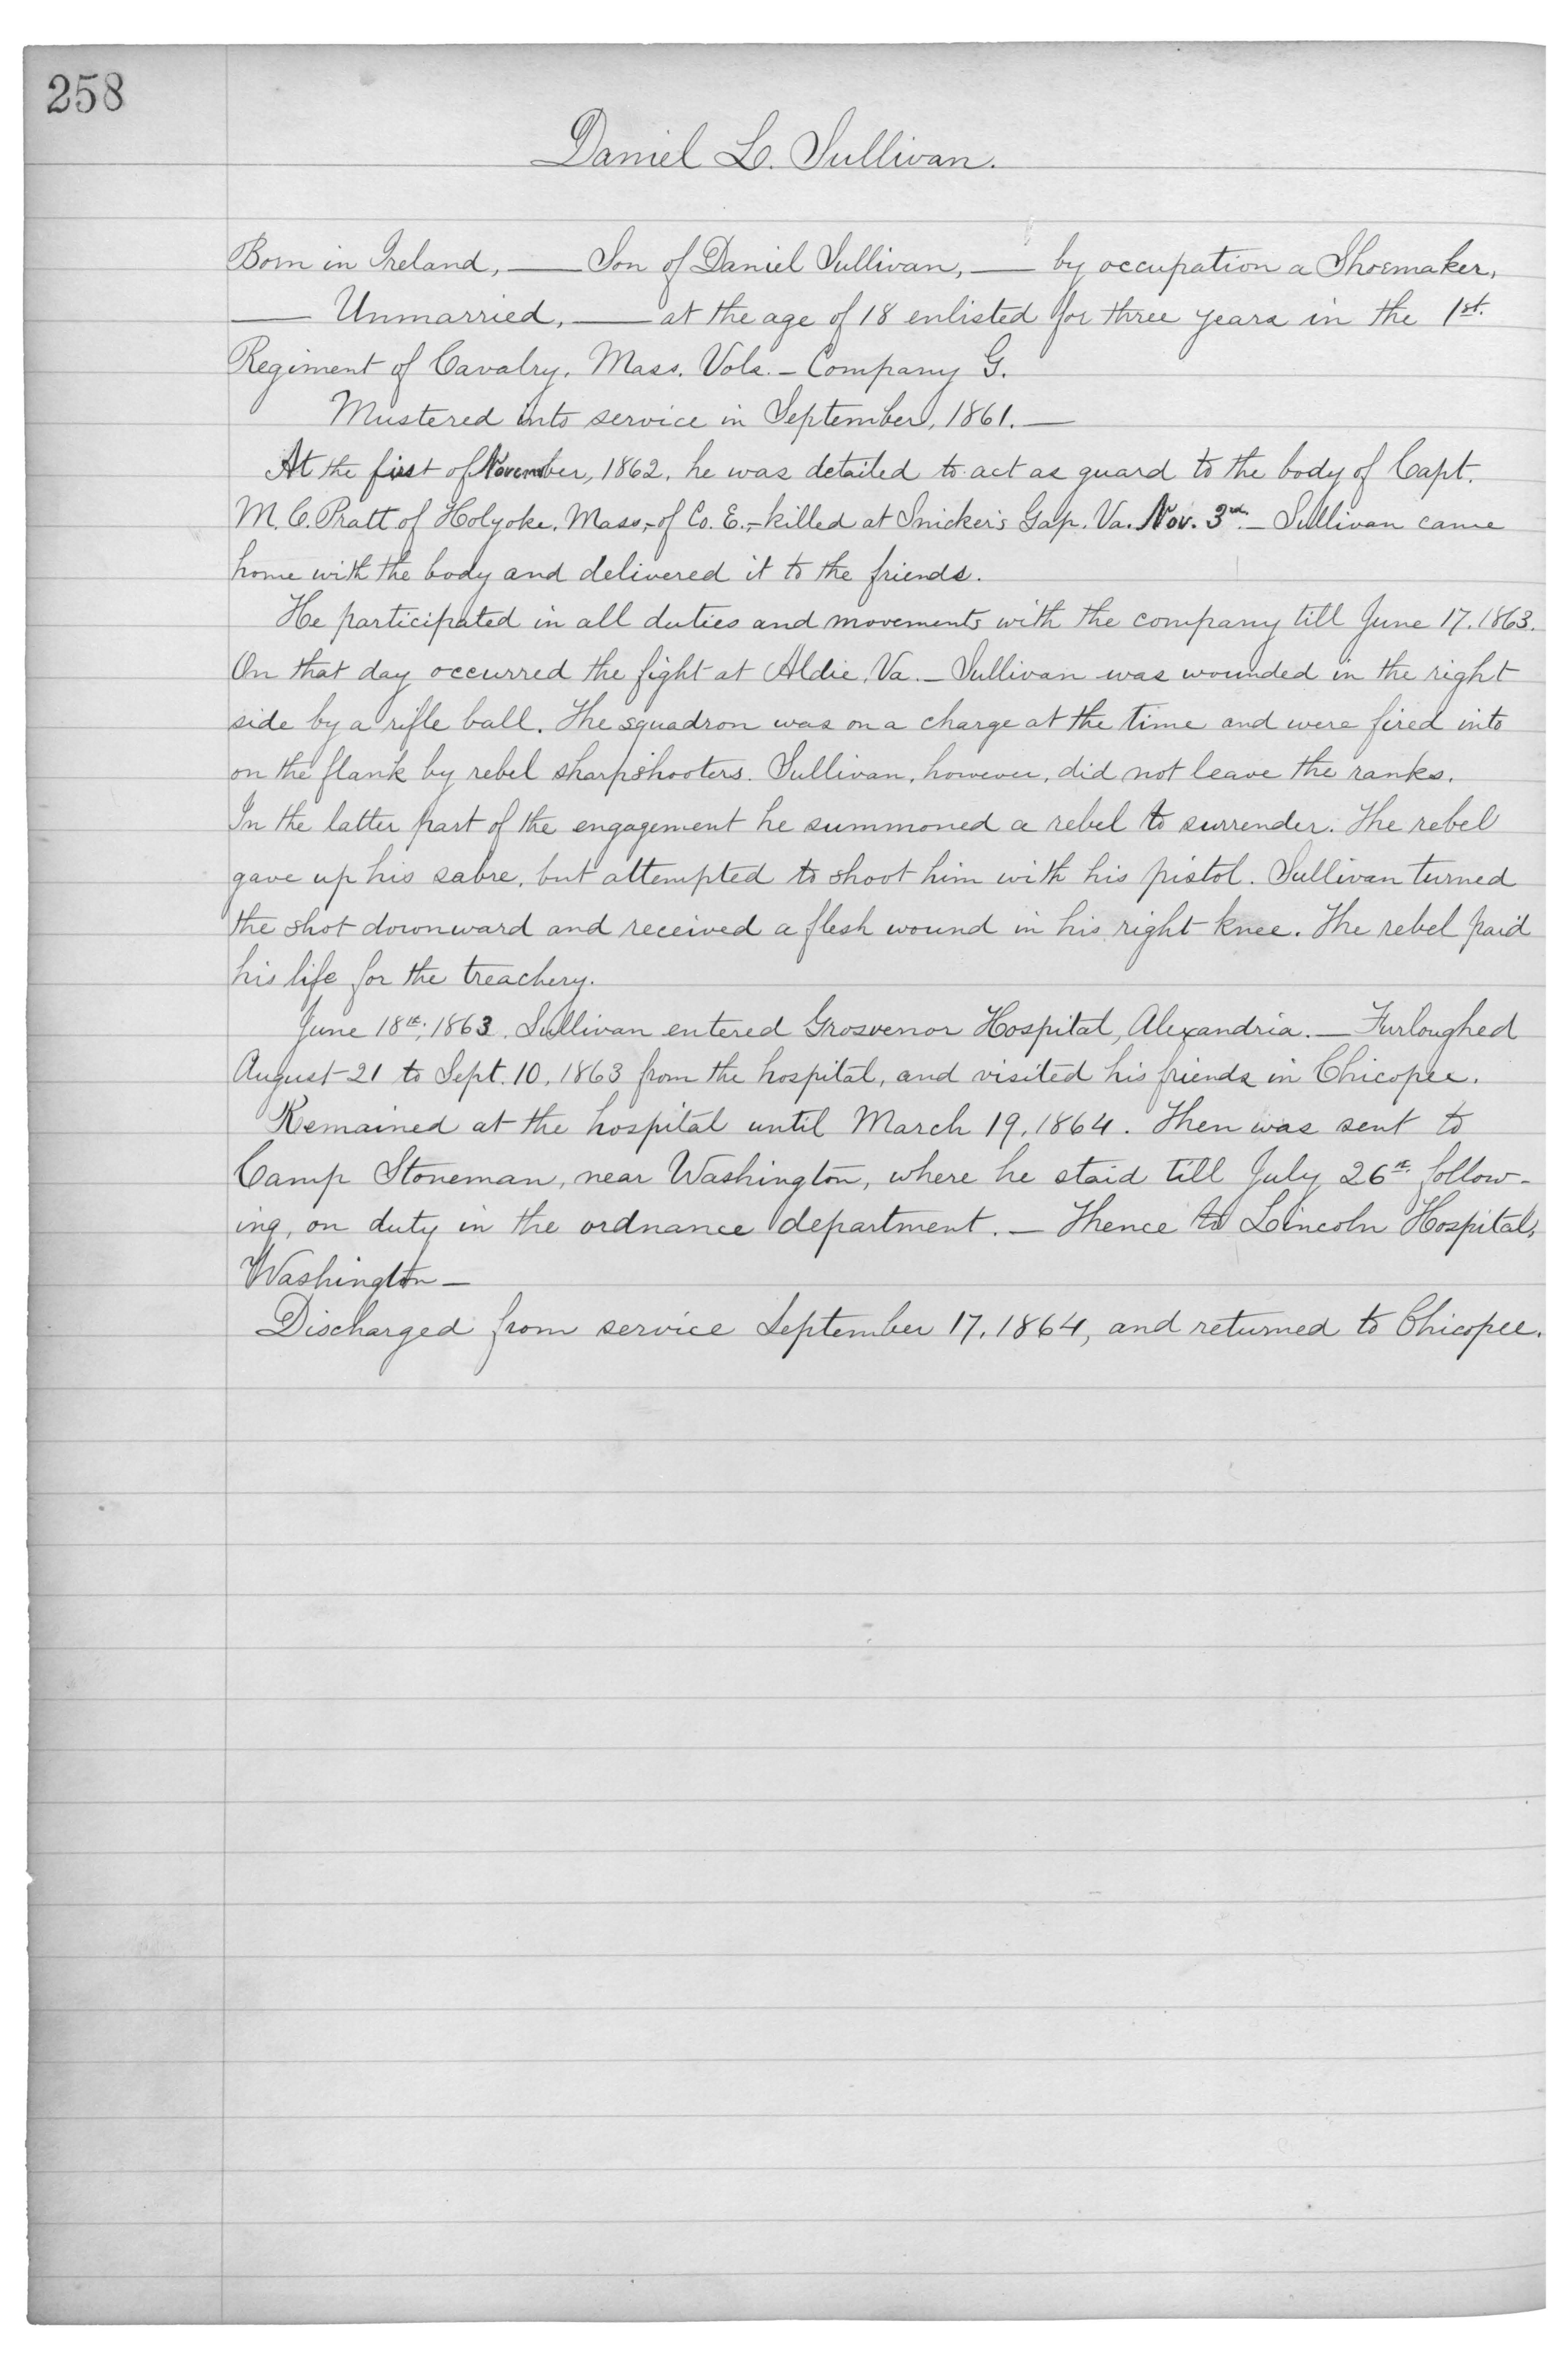 258
Daniel L. Sullivan.
Born in Ireland, — Son of Daniel Sullivan, — by occupation a Shoemaker,
— Unmarried, — at the age of 18 enlisted for three years in the 1st.
Regiment of Cavalry, Mass. Vols. – Company G.
Mustered into service in September, 1861. —
At the first of November, 1862, he was detailed to act as guard to the body of Capt.
M. C. Pratt of Holyoke, Mass, – of Co. E. – killed at Snicker's Gap, Va. Nov. 3rd. – Sullivan came
home with the body and delivered it to the friends.
He participated in all duties and movements with the company till June 17, 1863.
On that day occurred the fight at Aldie, Va. – Sullivan was wounded in the right
side by a rifle ball. The squadron was on a charge at the time and were fired into
on the flank by rebel sharpshooters. Sullivan, however, did not leave the ranks.
In the latter part of the engagement he summoned a rebel to surrender. The rebel
gave up his sabre, but attempted to shoot him with his pistol. Sullivan turned
the shot downward and received a flesh wound in his right knee. The rebel paid
his life for the treachery.
June 18th, 1863. Sullivan entered Grosvenor Hospital, Alexandria. — Furloughed
August 21 to Sept. 10, 1863 from the hospital, and visited his friends in Chicopee.
Remained at the hospital until March 19, 1864. Then was sent to
Camp Stoneman, near Washington, where he staid till July 26th follow-
ing, on duty in the ordnance department. – Thence to Lincoln Hospital,
Washington –
Discharged from service September 17, 1864, and returned to Chicopee.